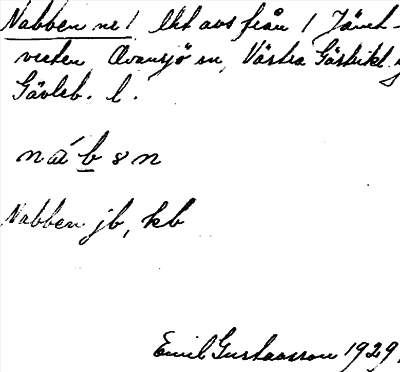 Nabben ne! lht avs från / Järvst-
vreten Ovansjö sn, Västra Gästrikl.
Gävleb. l.
nábən
Nabben jb, kb
Emil Gustavsson 1929.